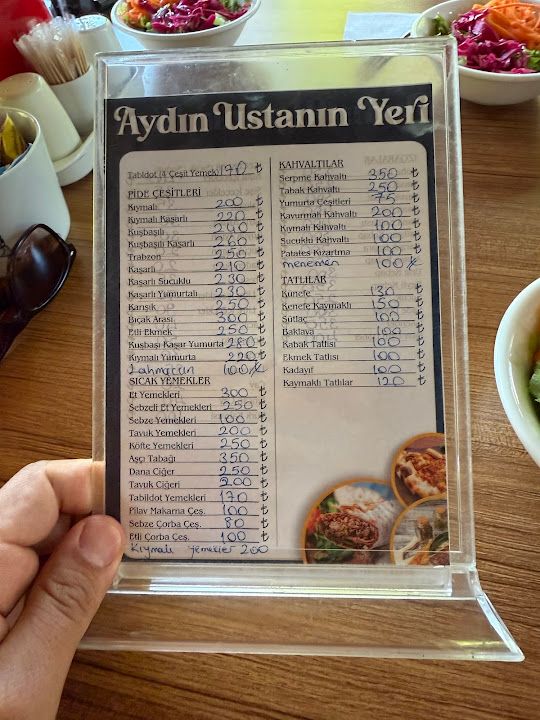 Aydın Ustanın Yeri
Tabldot (4 Çeşit Yemek 170 ₺
PİDE ÇEŞİTLERİ
Kıymalı 200 ₺
Kıymalı Kaşarlı 220 ₺
Kuşbaşılı 240 ₺
Kuşbaşılı Kaşarlı 260 ₺
Trabzon 250 ₺
Kaşarlı 210 ₺
Kaşarlı Sucuklu 230 ₺
Kaşarlı Yumurtalı 230 ₺
Karışık 250 ₺
Bıçak Arası 300 ₺
Etli Ekmek 250 ₺
Kuşbaşı Kaşar Yumurta 280 ₺
Kıymalı Yumurta 220 ₺
Lahmacun 100 ₺
SICAK YEMEKLER
Et Yemekleri 300 ₺
Sebzeli Et Yemekleri 250 ₺
Sebze Yemekleri 100 ₺
Tavuk Yemekleri 200 ₺
Köfte Yemekleri 250 ₺
Aşçı Tabağı 350 ₺
Dana Ciğer 250 ₺
Tavuk Ciğeri 200 ₺
Tabildot Yemekleri 170 ₺
Pilav Makarna Çeş. 100 ₺
Sebze Çorba Çeş. 80 ₺
Etli Çorba Çeş. 100 ₺
Kıymalı yemekler 200
KAHVALTILAR
Serpme Kahvaltı 350 ₺
Tabak Kahvaltı 250 ₺
Yumurta Çeşitleri 75 ₺
Kavurmalı Kahvaltı 200 ₺
Kıymalı Kahvaltı 100 ₺
Sucuklu Kahvaltı 100 ₺
Patates Kızartma 100 ₺
menemen 100 ₺
TATLILAR
Künefe 130 ₺
Kenefe Kaymaklı 150 ₺
Sütlaç 100 ₺
Baklava 100 ₺
Kabak Tatlısı 100 ₺
Ekmek Tatlısı 100 ₺
Kadayıf 100 ₺
Kaymaklı Tatlılar 120 ₺